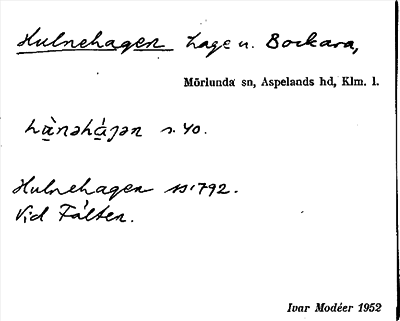 Hulnehagen hage u. Bockara,
Mörlunda sn, Aspelands hd, Klm. l.
s. 40.
Hulnehagen 1792.
Vid Fälten.
Ivar Modéer 1952